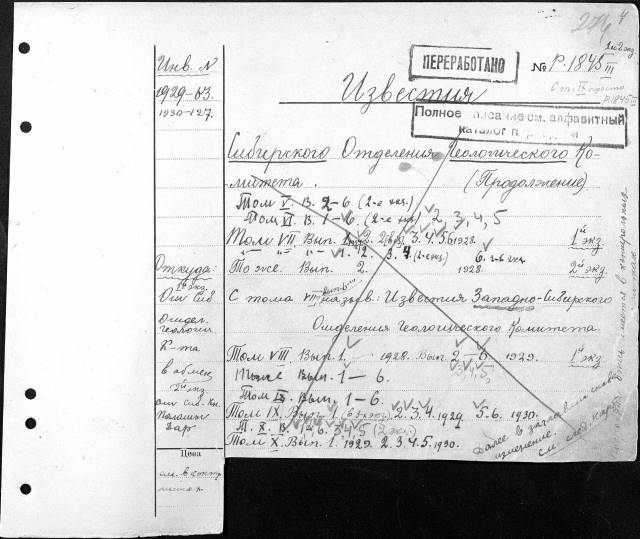 204 4
1 и 2 экз
ПЕРЕРАБОТАНО
№ Р.1845 III
Инв. N
1929-83.
1930-127.
Известия
Р1845
Полное писание см. алфавитный
каталог п
Сибирского Отделения Геологического Ко-
митета. (Продолжение)
Том V. В. 2-6 (2-е экз.)
Том VI. В. 1-6 (2-е экз) 2, 3, 4, 5
Том VII. Вып. 2. 3. 4. 5. 1928. 1й экз.
1. 2. 3. 4. (2 экз) 6. 2 экз
То же. Вып. 2. 1928. 2й экз.
Откуда:
1й экз.
От Сиб.
Отдел.
Геологич.
К-та
в обмен
2й экз
от Сиб. Кн.
Палаты
дар
С тома VII назыв: Известия Западно-Сибирского
Отделения Геологического Комитета.
Том VIII. Вып. 1. 1928. Вып. 2-6. 1929. 1й экз
3, 4, 5,
Тоже Вып. 1-6.
Том IX. Вып, 1-6.
Том IX. Вып. 1 (2 экз.) 2. 3. 4. 1929 5. 6. 1930.
Т. X. В. 3 4 5 (2 экз.)
Том X. Вып. 1. 1929. 2. 3. 4. 5. 1930.
Далее в заглавии снова
изменение.
см след. карт
Цена
см. в контр